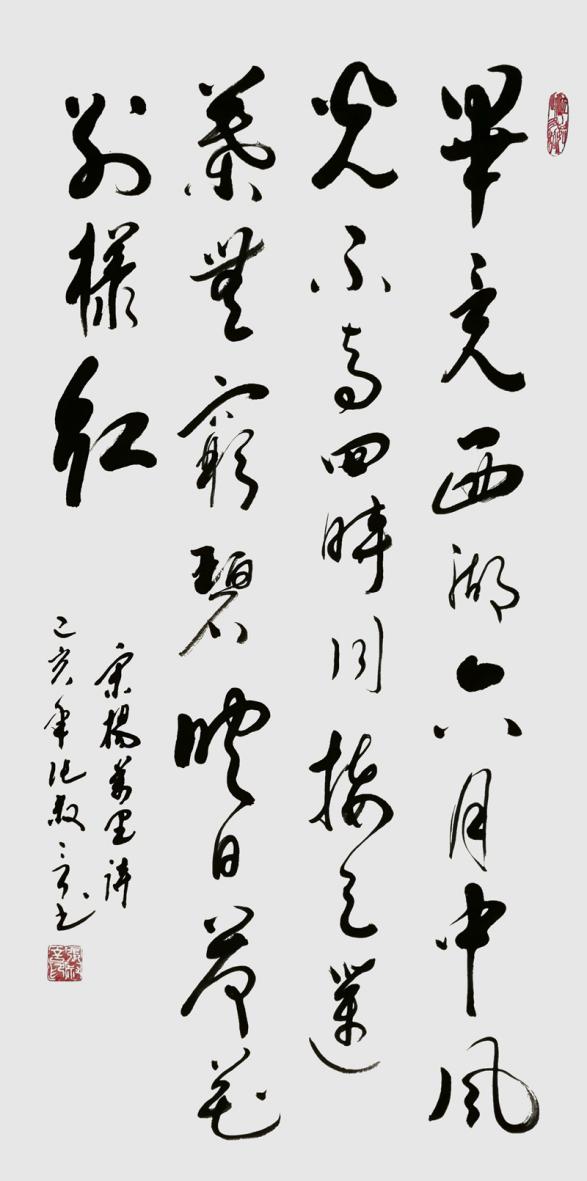 畢竟西湖六月中風
光不与四時同接天蓮
葉無窮碧映日荷花
別樣紅
宋楊萬里詩
己亥年书